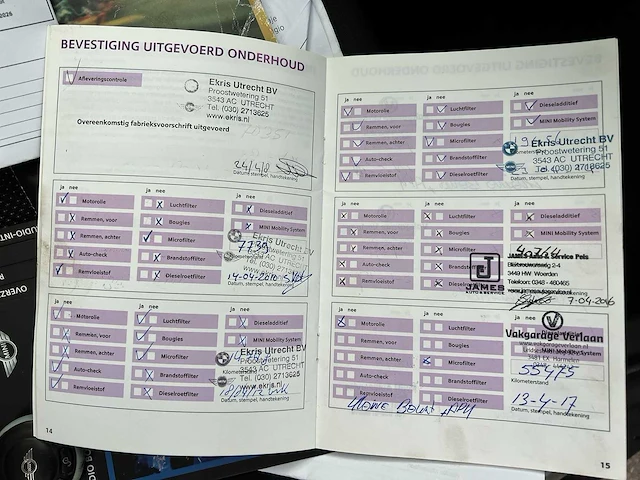 BEVESTIGING UITGEVOERD ONDERHOUD
Afleveringscontrole
Ekris Utrecht BV
Proostwetering 51
3543 AC UTRECHT
Tel. (030) 2713625
www.ekris.nl
Overeenkomstig fabrieksvoorschrift uitgevoerd
Datum, stempel, handtekening
ja nee
ja nee
Motorolie
Luchtfilter
Dieseladditief
Remmen, voor
Bougies
MINI Mobility System
Remmen, achter
Microfilter
Auto-check
Brandstoffilter
Remvloeistof
Dieselroetfilter
Ekris Utrecht BV
7739
14-04-2010
Datum, stempel, handtekening
ja nee
ja nee
Motorolie
Luchtfilter
Dieseladditief
Remmen, voor
Bougies
MINI Mobility System
Remmen, achter
Microfilter
Auto-check
Brandstoffilter
Remvloeistof
Dieselroetfilter
Ekris Utrecht BV
Proostwetering 51
3543 AC UTRECHT
Tel. (030) 2713625
www.ekris.nl
Datum, stempel, handtekening
14
ja nee
ja nee
Motorolie
Luchtfilter
Dieseladditief
Remmen, voor
Bougies
MINI Mobility System
Remmen, achter
Microfilter
Auto-check
Brandstoffilter
Remvloeistof
Dieselroetfilter
Ekris Utrecht BV
Proostwetering 51
3543 AC UTRECHT
Tel. (030) 2713625
Datum, stempel, handtekening
ja nee
ja nee
Motorolie
Luchtfilter
Dieseladditief
Remmen, voor
Bougies
MINI Mobility System
Remmen, achter
Microfilter
Auto-check
Brandstoffilter
Remvloeistof
JAMES
AUTO & SERVICE
JAMES Auto & Service Pels
3449 HW Woerden
Telefoon: 0348 - 460465
7-04-2016
ja nee
ja nee
Motorolie
Luchtfilter
Remmen, voor
Bougies
MINI Mobility System
Remmen, achter
Microfilter
Auto-check
Brandstoffilter
Remvloeistof
Dieselroetfilter
Vakgarage Verlaan
55475
Kilometerstand
13-4-17
Datum, stempel, handtekening
Kleine Beurt + APK
15